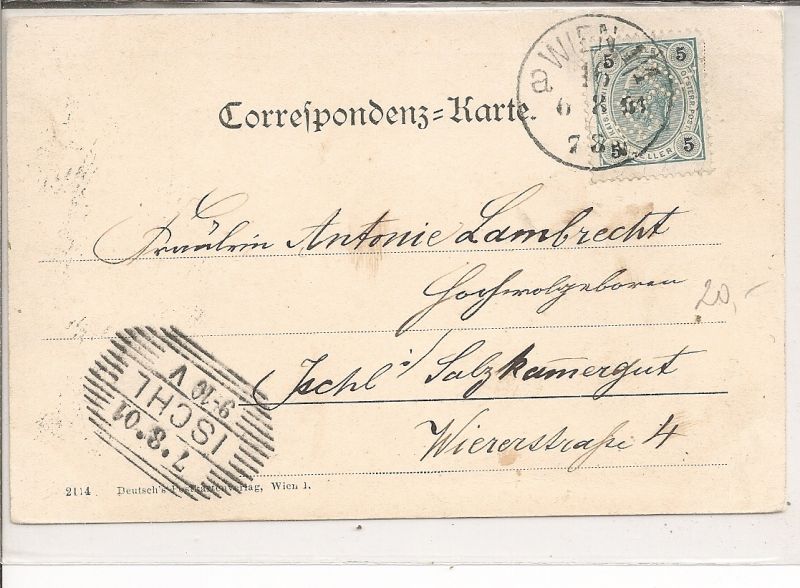 a WIEN
6 8 01
7 8 N
5 5
HELLER
5 5
Correspondenz=Karte.
Fräulein Antonie Lambrecht
Hochwolgeboren
20,-
Ischl i/ Salzkammergut
Wiererstraße 4
7.8.01
ISCHL
9-10 V
2114 Deutsch's Postkartenverlag, Wien I.